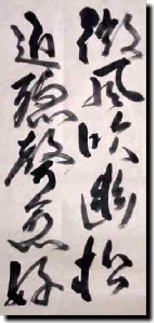 微風吹幽松
近聴聲愈好